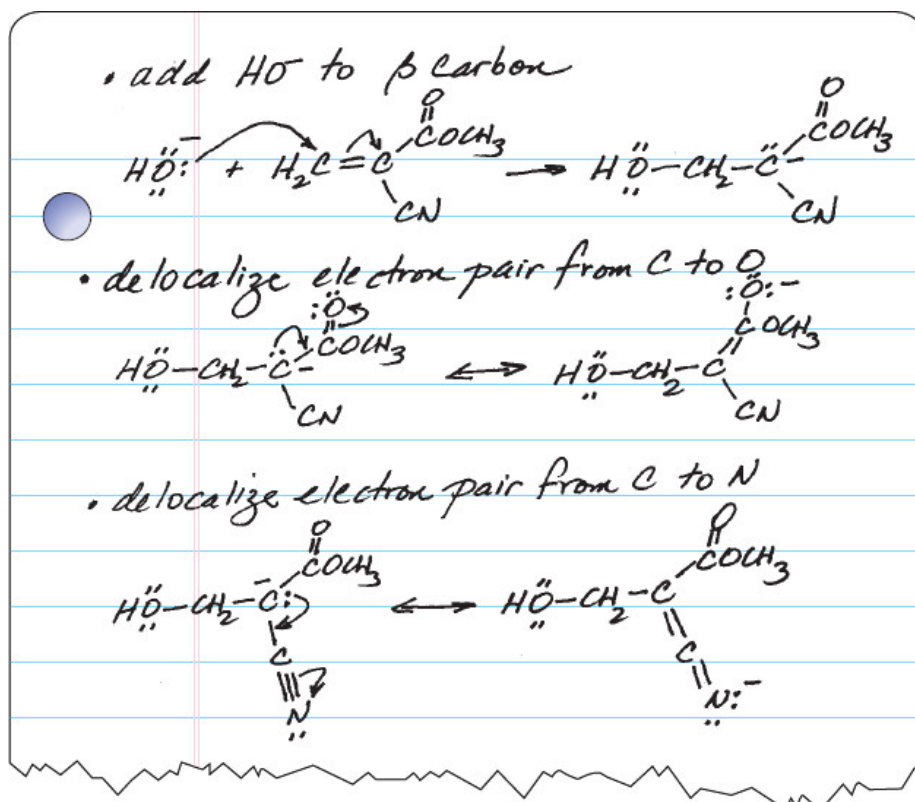 • add HO⁻ to β carbon
O
HÖ:⁻ + H₂C=C COCH₃ → HÖ-CH₂-C̈⁻ COCH₃
O
CN CN
• delocalize electron pair from C to O
:Ö :Ö:⁻
HÖ-CH₂-C̈⁻ COCH₃ ↔ HÖ-CH₂-C=C OCH₃
CN CN
• delocalize electron pair from C to N
O O
HÖ-CH₂-C:⁻ COCH₃ ↔ HÖ-CH₂-C COCH₃
C C
N N:⁻